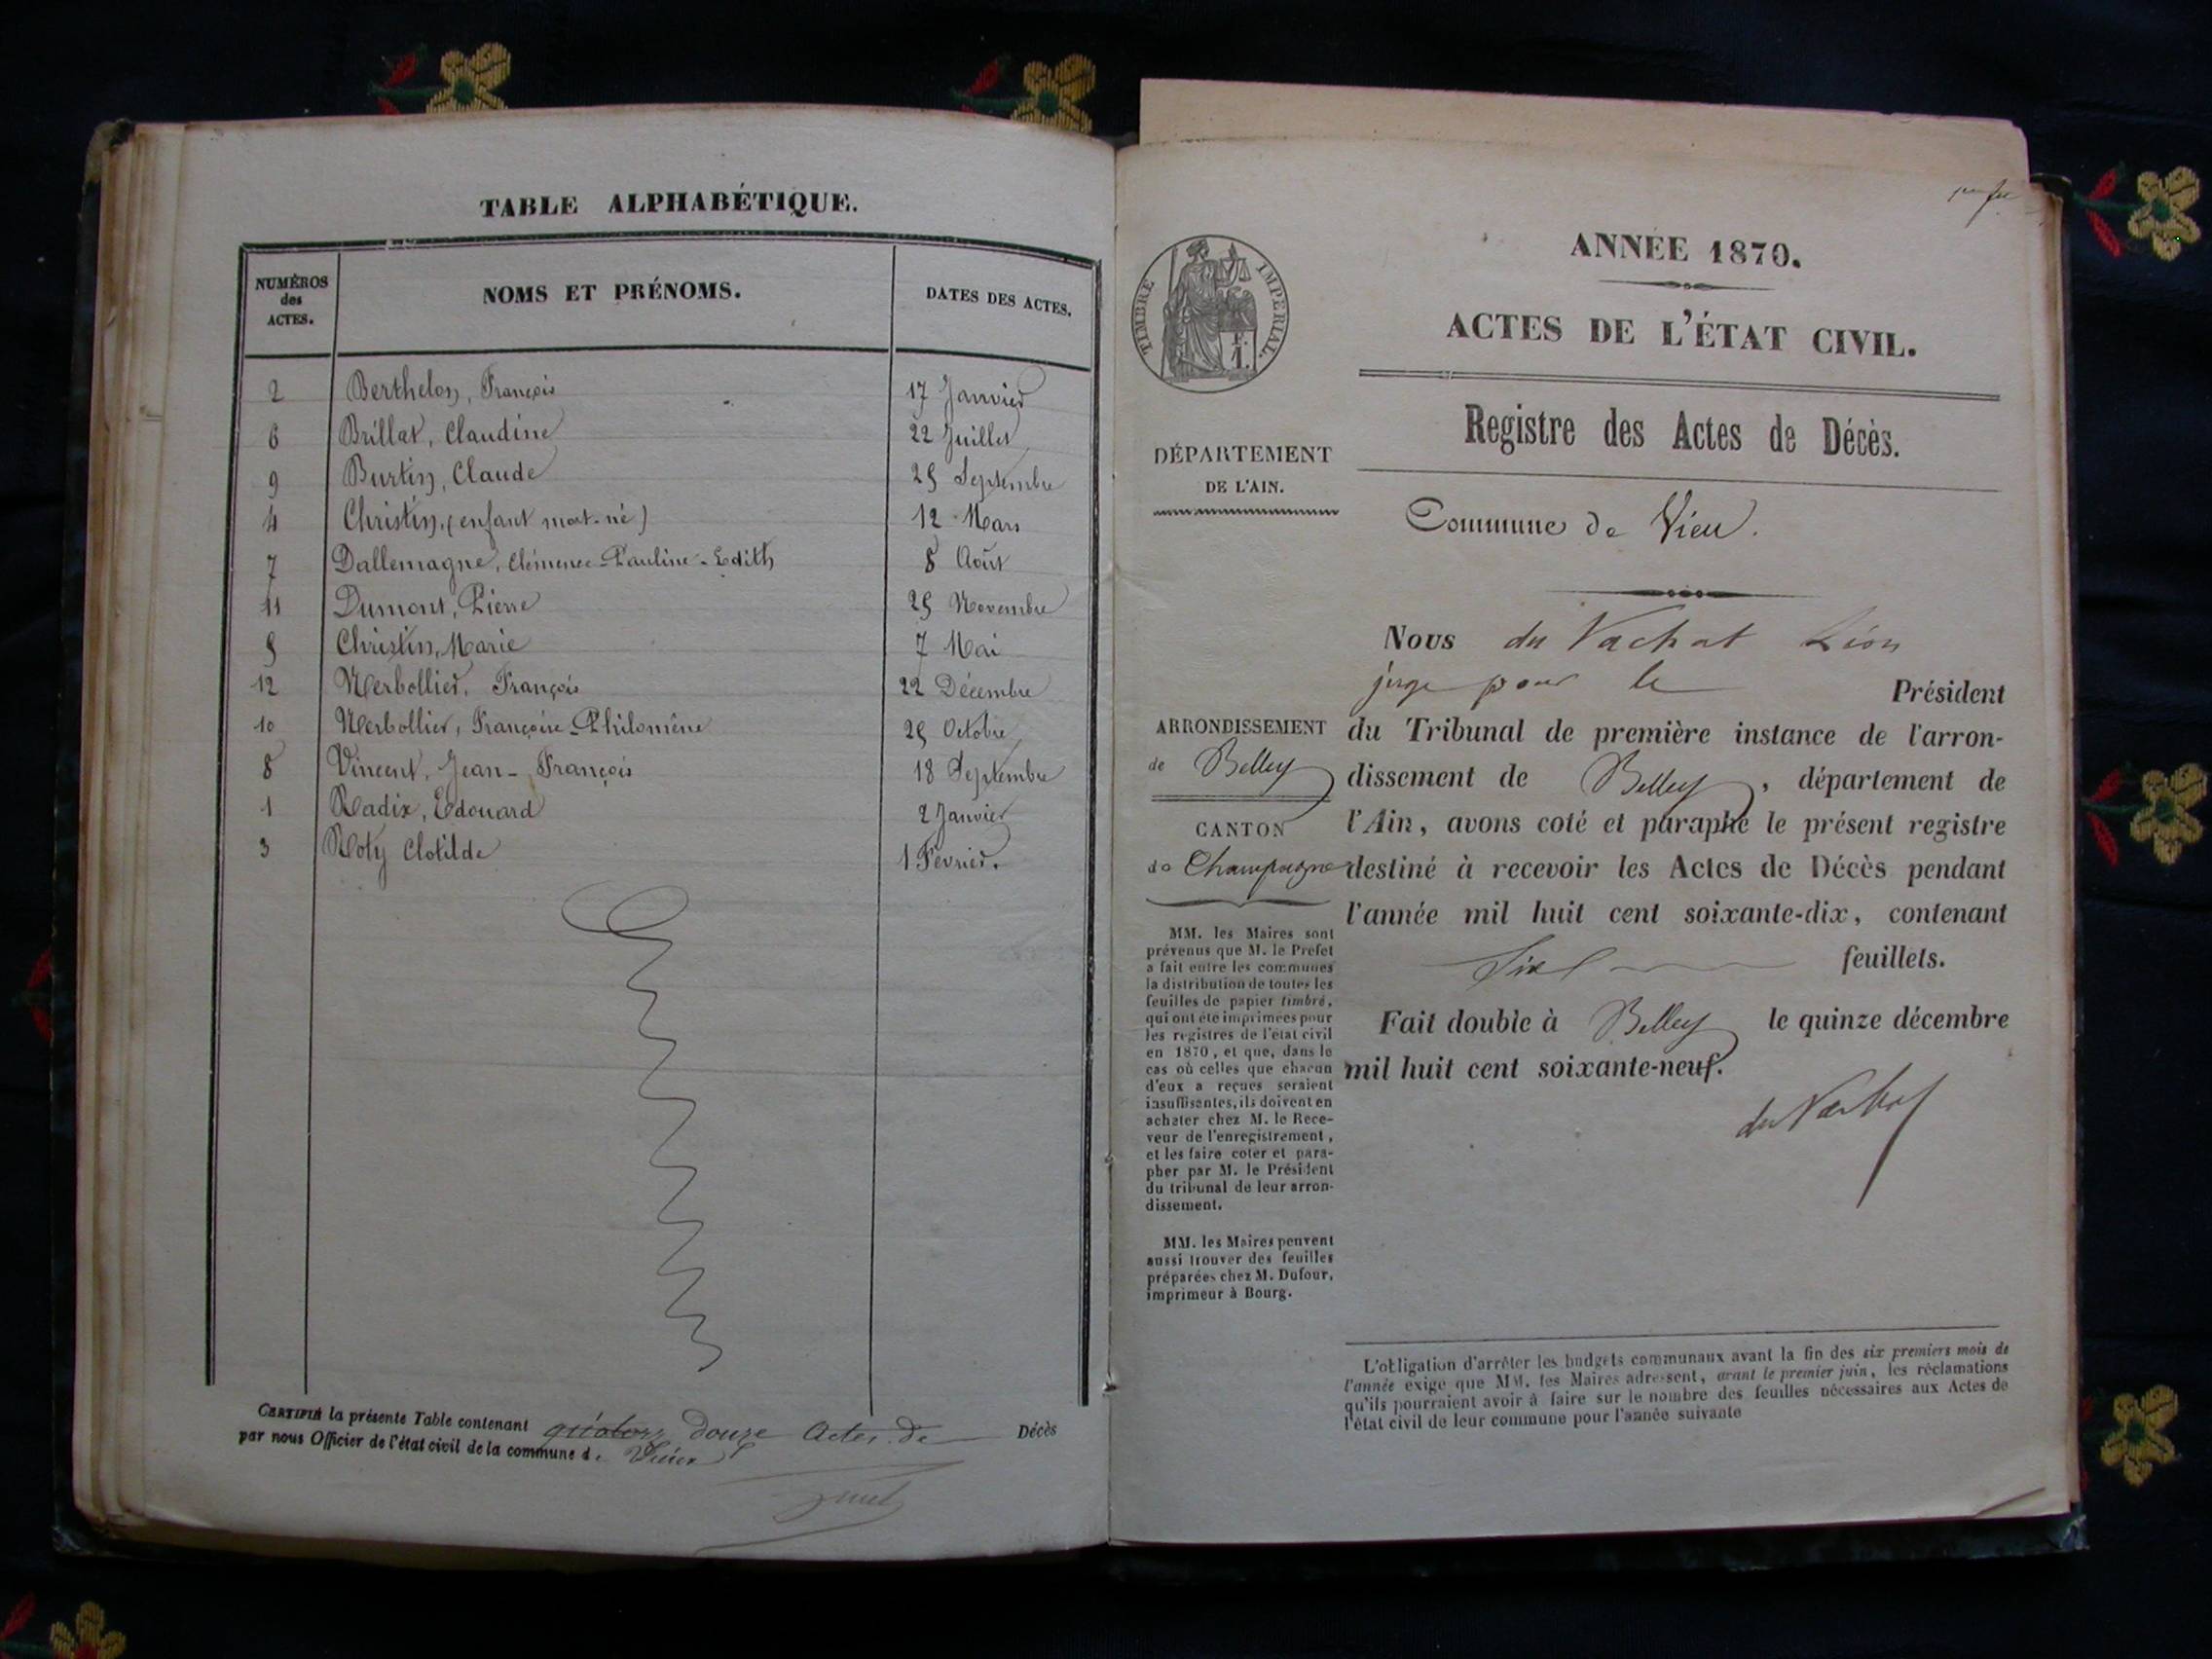 TABLE ALPHABÉTIQUE.
NUMÉROS des ACTES.
NOMS ET PRÉNOMS.
DATES DES ACTES.
2 Berthelon, François 17 Janvier
6 Brillat, Claudine 22 Juillet
9 Burtin, Claude 25 Septembre
4 Christin, (enfant mort-né) 12 Mars
7 Dallemagne, Clémence-Pauline-Edith 8 Août
11 Dumont, Pierre 25 Novembre
5 Christin, Marie 7 Mai
12 Merbollier, François 22 Décembre
10 Merbollier, Françoise-Philomène 25 Octobre
8 Vincent, Jean-François 18 Septembre
1 Radix, Edouard 2 Janvier
3 Roty Clotilde 1 Février.
CERTIFIÉ la présente Table contenant douze Actes de Décès
par nous Officier de l'état civil de la commune de Vieu
TIMBRE IMPERIAL.
1 F.
ANNÉE 1870.
ACTES DE L'ÉTAT CIVIL.
Registre des Actes de Décès.
Commune de Vieu.
DÉPARTEMENT
DE L'AIN.
ARRONDISSEMENT
de Belley
CANTON
de Champagne
MM. les Maires sont
prévenus que M. le Préfet
a fait entre les communes
la distribution de toutes les
feuilles de papier timbré,
qui ont été imprimées pour
les registres de l'état civil
en 1870, et que, dans le
cas où celles que chacun
d'eux a reçues seraient
insuffisantes, ils doivent en
acheter chez M. le Rece-
veur de l'enregistrement,
et les faire coter et para-
pher par M. le Président
du tribunal de leur arron-
dissement.
MM. les Maires peuvent
aussi trouver des feuilles
préparées chez M. Dufour,
imprimeur à Bourg.
Nous du Vachat Léon
juge pour le Président
du Tribunal de première instance de l'arron-
dissement de Belley, département de
l'Ain, avons coté et paraphé le présent registre
destiné à recevoir les Actes de Décès pendant
l'année mil huit cent soixante-dix, contenant
six feuillets.
Fait double à Belley le quinze décembre
mil huit cent soixante-neuf.
du Vachat
L'obligation d'arrêter les budgets communaux avant la fin des six premiers mois de
l'année exige que MM. les Maires adressent, avant le premier juin, les réclamations
qu'ils pourraient avoir à faire sur le nombre des feuilles nécessaires aux Actes de
l'état civil de leur commune pour l'année suivante